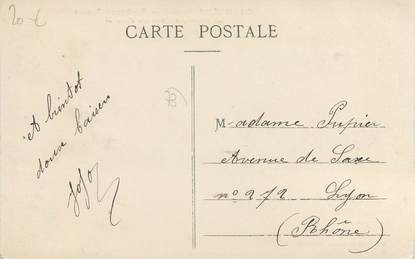 20 €
CARTE POSTALE
et bientot
doux baisers
Jojo
Madame Pupier
Avenue de Saxe
n° 272 Lyon
(Rhône)